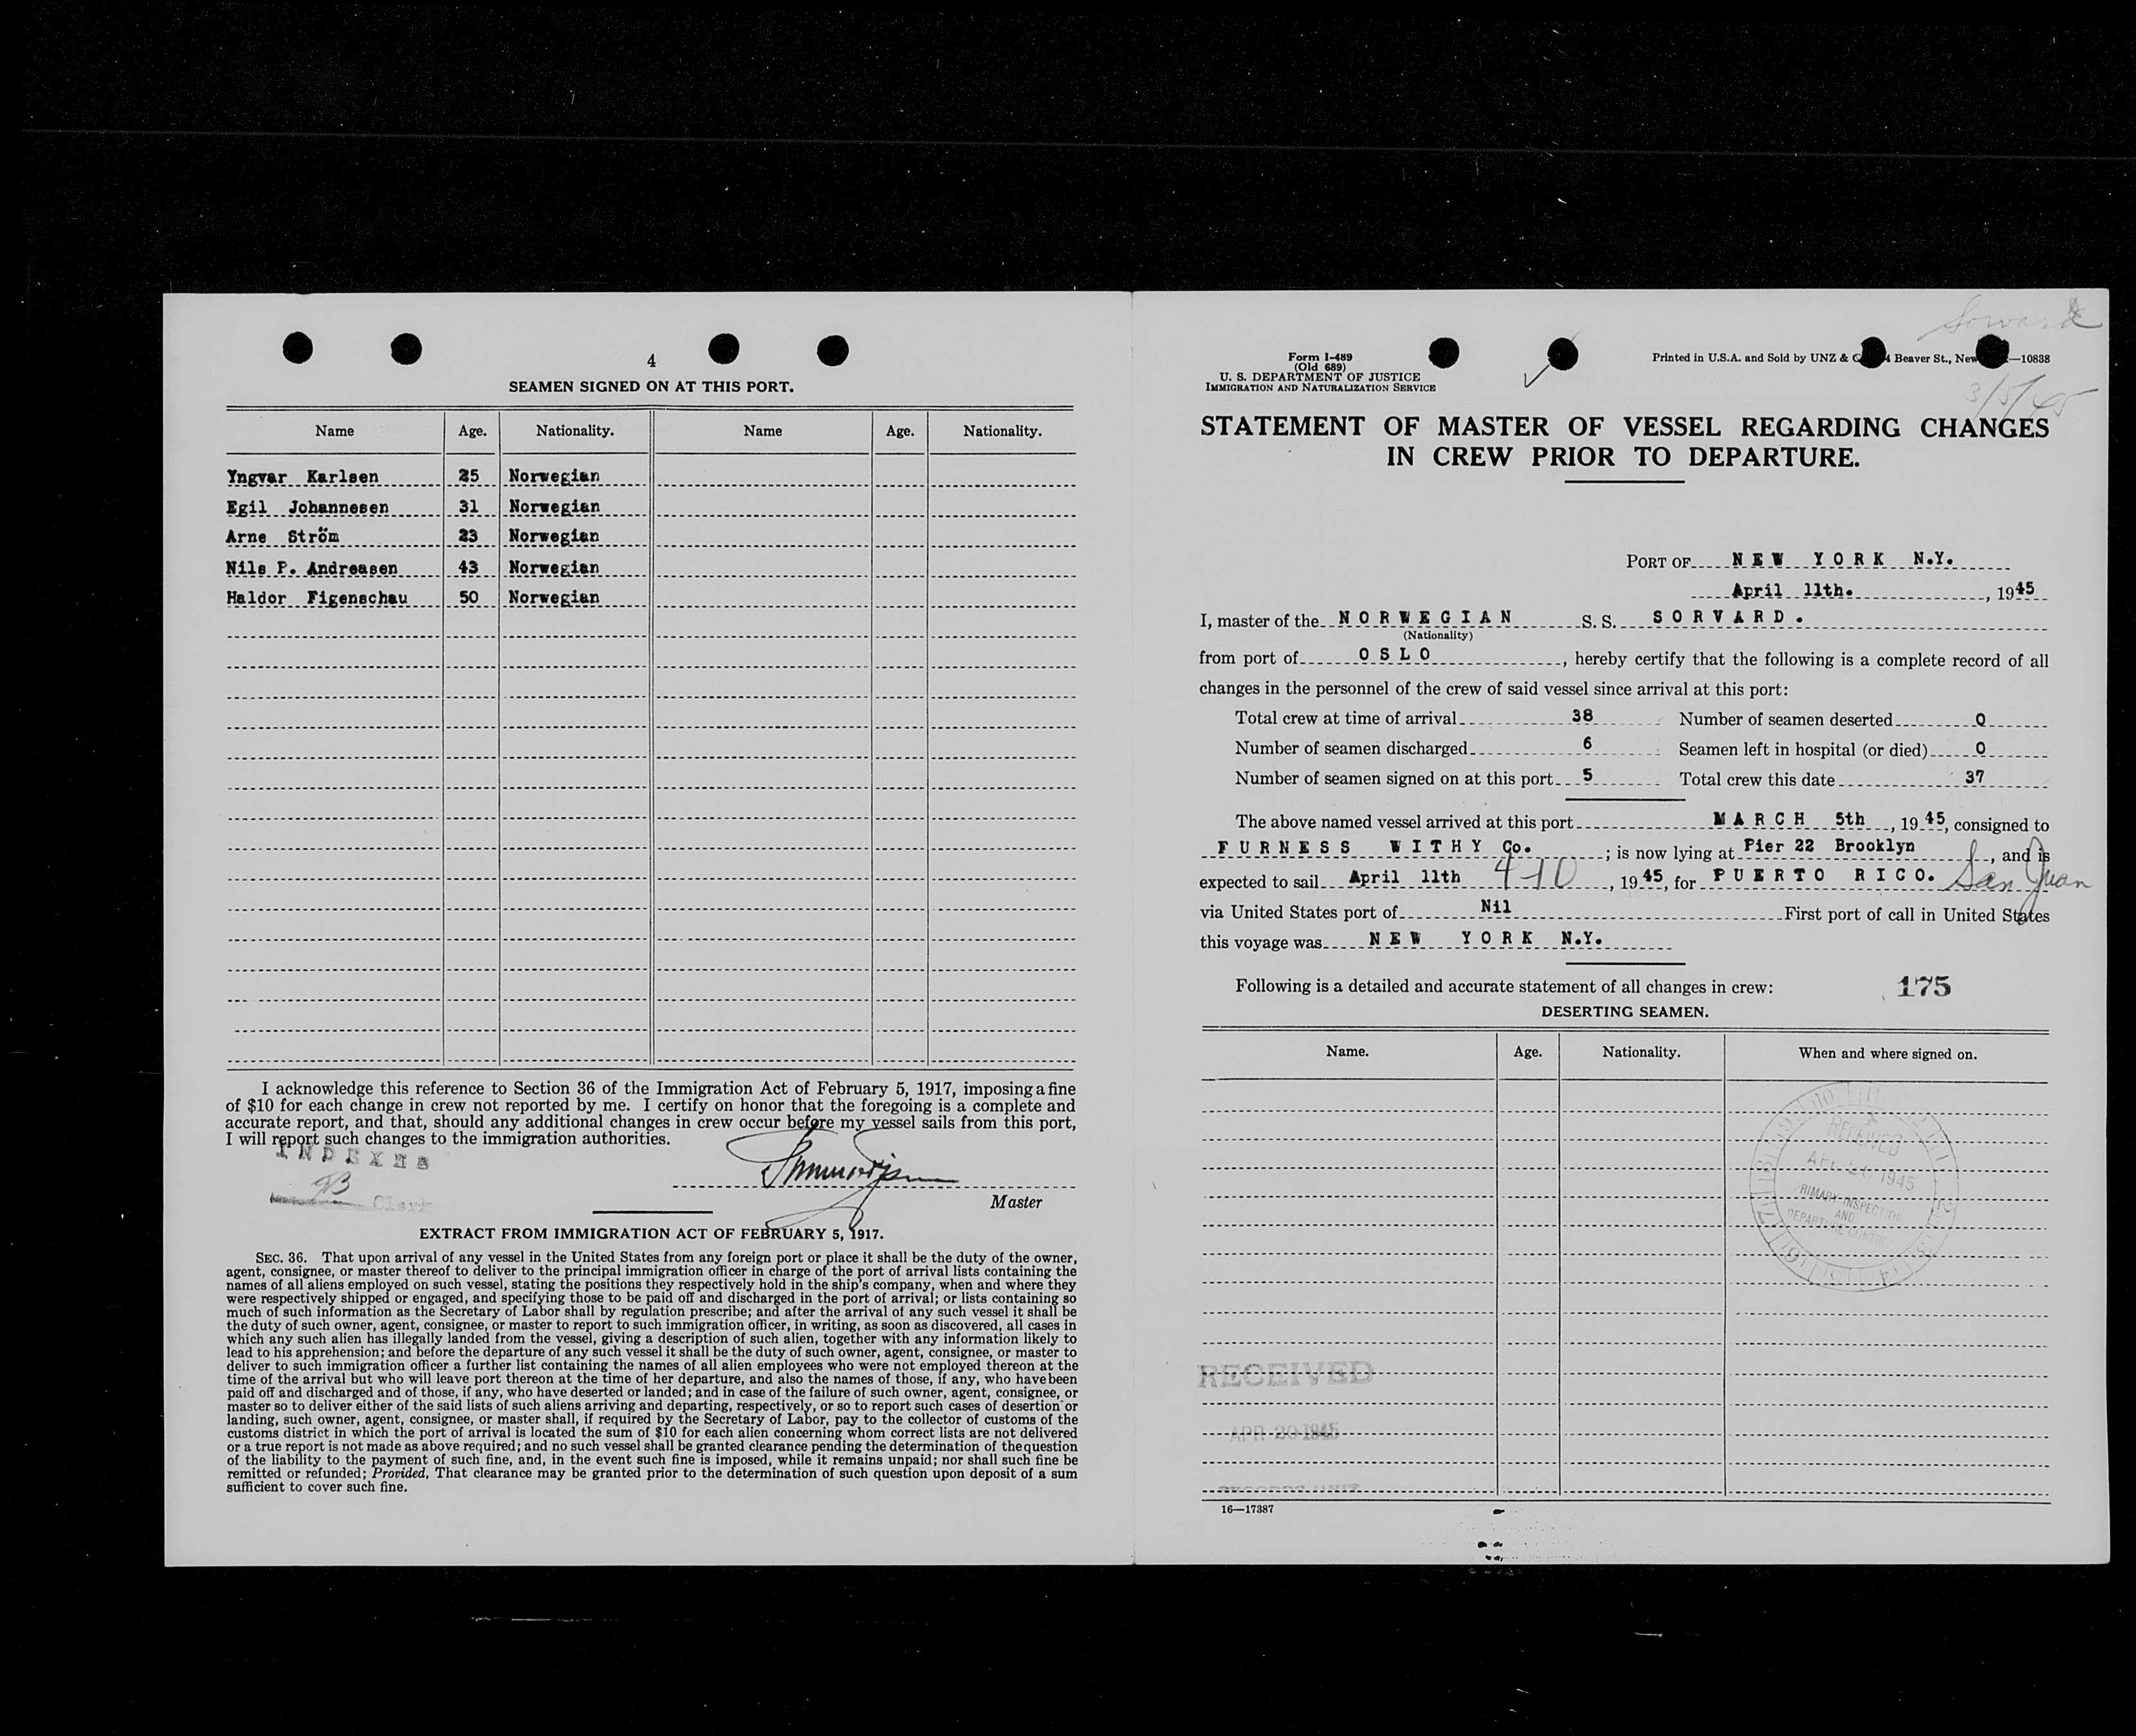 4
SEAMEN SIGNED ON AT THIS PORT.
Name Age. Nationality. Name Age. Nationality.
Yngvar Karlsen 25 Norwegian
Egil Johannesen 31 Norwegian
Arne Ström 23 Norwegian
Nils P. Andreasen 43 Norwegian
Haldor Figenschau 50 Norwegian
I acknowledge this reference to Section 36 of the Immigration Act of February 5, 1917, imposing a fine
of $10 for each change in crew not reported by me. I certify on honor that the foregoing is a complete and
accurate report, and that, should any additional changes in crew occur before my vessel sails from this port,
I will report such changes to the immigration authorities.
INDEXED
Clerk
Master
EXTRACT FROM IMMIGRATION ACT OF FEBRUARY 5, 1917.
SEC. 36. That upon arrival of any vessel in the United States from any foreign port or place it shall be the duty of the owner,
agent, consignee, or master thereof to deliver to the principal immigration officer in charge of the port of arrival lists containing the
names of all aliens employed on such vessel, stating the positions they respectively hold in the ship's company, when and where they
were respectively shipped or engaged, and specifying those to be paid off and discharged in the port of arrival; or lists containing so
much of such information as the Secretary of Labor shall by regulation prescribe; and after the arrival of any such vessel it shall be
the duty of such owner, agent, consignee, or master to report to such immigration officer, in writing, as soon as discovered, all cases in
which any such alien has illegally landed from the vessel, giving a description of such alien, together with any information likely to
lead to his apprehension; and before the departure of any such vessel it shall be the duty of such owner, agent, consignee, or master to
deliver to such immigration officer a further list containing the names of all alien employees who were not employed thereon at the
time of the arrival but who will leave port thereon at the time of her departure, and also the names of those, if any, who have been
paid off and discharged and of those, if any, who have deserted or landed; and in case of the failure of such owner, agent, consignee, or
master so to deliver either of the said lists of such aliens arriving and departing, respectively, or so to report such cases of desertion or
landing, such owner, agent, consignee, or master shall, if required by the Secretary of Labor, pay to the collector of customs of the
customs district in which the port of arrival is located the sum of $10 for each alien concerning whom correct lists are not delivered
or a true report is not made as above required; and no such vessel shall be granted clearance pending the determination of the question
of the liability to the payment of such fine, and, in the event such fine is imposed, while it remains unpaid; nor shall such fine be
remitted or refunded; Provided, That clearance may be granted prior to the determination of such question upon deposit of a sum
sufficient to cover such fine.
Sorvard
3/5/45
Form I-489
(Old 689)
U. S. DEPARTMENT OF JUSTICE
IMMIGRATION AND NATURALIZATION SERVICE
Printed in U.S.A. and Sold by UNZ & C 4 Beaver St., New —10838
STATEMENT OF MASTER OF VESSEL REGARDING CHANGES
IN CREW PRIOR TO DEPARTURE.
PORT OF NEW YORK N.Y.
April 11th. , 1945
I, master of the NORWEGIAN S. S. SORVARD.
(Nationality)
from port of OSLO , hereby certify that the following is a complete record of all
changes in the personnel of the crew of said vessel since arrival at this port:
Total crew at time of arrival 38 Number of seamen deserted 0
Number of seamen discharged 6 Seamen left in hospital (or died) 0
Number of seamen signed on at this port 5 Total crew this date 37
The above named vessel arrived at this port MARCH 5th , 1945, consigned to
FURNESS WITHY Co. ; is now lying at Pier 22 Brooklyn , and is
expected to sail April 11th 4-10 , 1945, for PUERTO RICO. San Juan
via United States port of Nil First port of call in United States
this voyage was NEW YORK N.Y.
Following is a detailed and accurate statement of all changes in crew: 175
DESERTING SEAMEN.
Name. Age. Nationality. When and where signed on.
RECEIVED
1945
PRIMARY INSPECTION
AND
DEPARTURE CONTROL
RECEIVED
APR 20 1945
16—17387